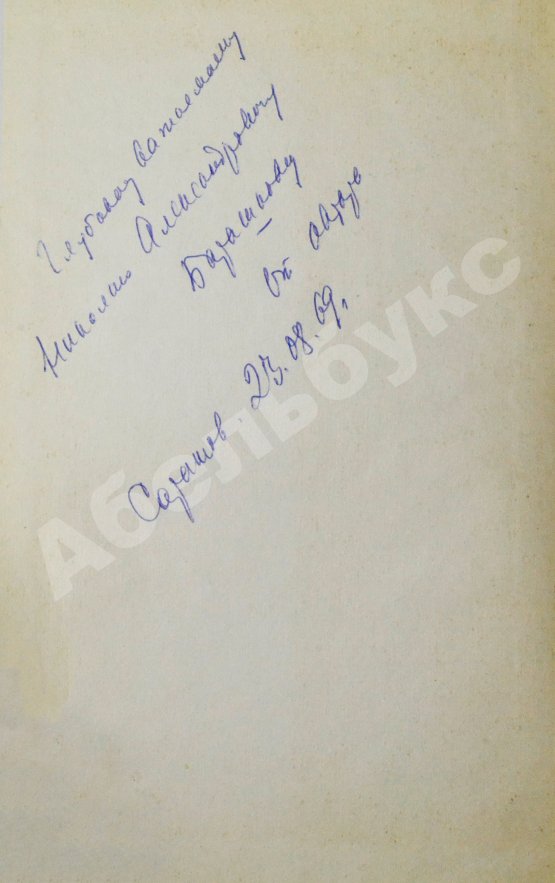 Глубокоуважаемому
Николаю Александровичу
от автора
Саратов 23.08.69.
Абельбукс